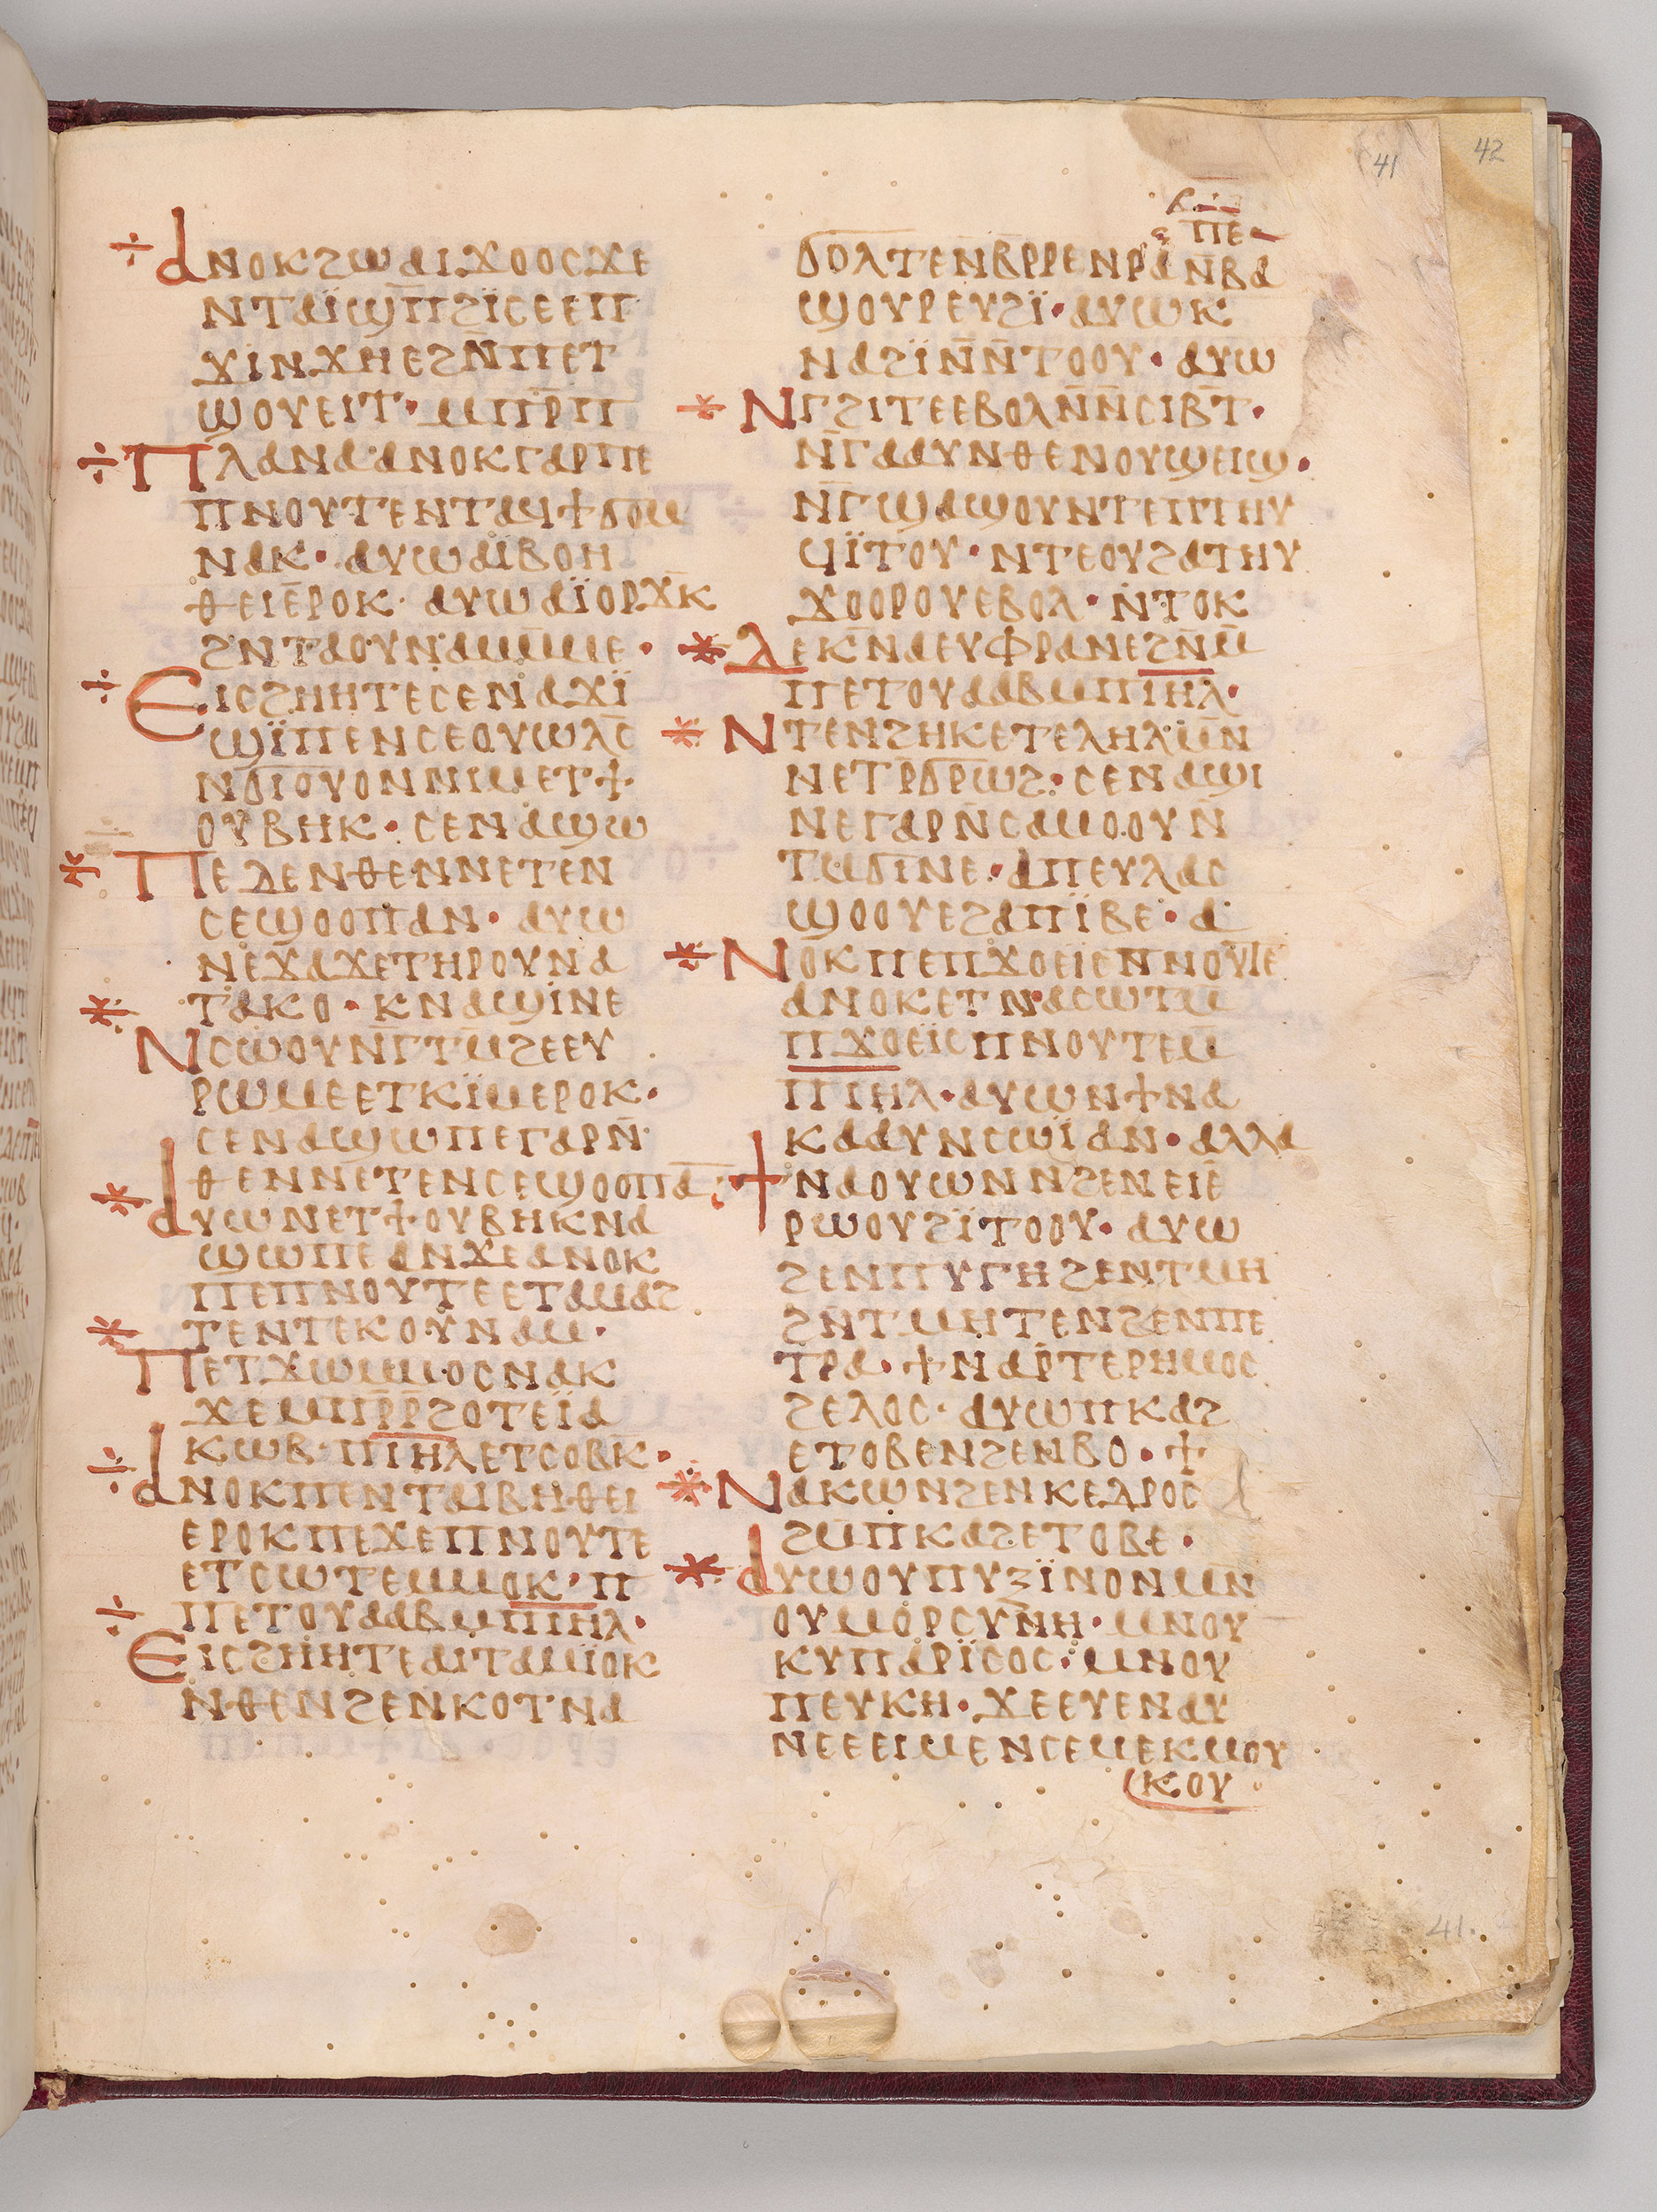 41
42
ⲡⲉ
÷ ⲁⲛⲟⲕϩⲱⲁⲓϫⲟⲟⲥϫⲉ
ⲛⲧⲁⲓ̈ϣⲡ̅ϩⲓ̈ⲥⲉⲉⲡ
ϫⲓⲛϫⲏⲉϩⲙ̅ⲡⲉⲧ
ϣⲟⲩⲉⲓⲧ· ⲙⲡⲣ̅ⲣⲡ
÷ ⲡⲗⲁⲛⲁ·ⲁⲛⲟⲕⲅⲁⲣⲡⲉ
ⲡⲛⲟⲩⲧⲉⲛⲧⲁϥϯϭⲟⲙ
ⲛⲁⲕ· ⲁⲩⲱⲁⲓ̈ⲃⲟⲏ
ⲑⲉⲓⲉ̅ⲣⲟⲕ· ⲁⲩⲱⲁⲓ̈ⲟⲣϫ̅ⲕ
ϩⲛⲧⲁⲟⲩⲛⲁⲙⲙ̅ⲙⲉ·
÷ ⲉⲓⲥϩⲏⲏⲧⲉⲥⲉⲛⲁϫⲓ̈
ϣⲓ̈ⲡⲉⲛⲥⲉⲟⲩⲱⲗⲥ̅
ⲛϭⲓⲟⲩⲟⲛⲛⲓⲙⲉⲧϯ·
ⲟⲩⲃⲏⲕ· ⲥⲉⲛⲁϣⲱ
* ⲡⲉⲇⲉⲛⲑⲉⲛⲛⲉⲧⲉⲛ
ⲥⲉϣⲟⲟⲡⲁⲛ· ⲁⲩⲱ
ⲛⲉϫⲁϫⲉⲧⲏⲣⲟⲩⲛⲁ
* ⲧⲁⲕⲟ· ⲕⲛⲁϣⲓⲛⲉ
ⲛⲥⲱⲟⲩⲛ̅ⲅⲧⲙ̅ϩⲉⲉⲩ
ⲣⲱⲙⲉⲉⲧⲕⲓ̈ⲙⲉⲣⲟⲕ·
ⲥⲉⲛⲁϣⲱⲡⲉⲅⲁⲣⲛ̅
ⲑⲉⲛⲛⲉⲧⲉⲛⲥⲉϣⲟⲟⲡⲁ̅·
* ⲁⲩⲱⲛⲉⲧϯⲟⲩⲃⲏⲕⲛⲁ
ϣⲱⲡⲉⲁⲛϫⲉⲁⲛⲟⲕ
ⲡⲉⲡⲛⲟⲩⲧⲉⲉⲧⲁⲙⲁϩ
* ⲧⲉⲛⲧⲉⲕⲟⲩⲛⲁⲙ·
ⲡⲉⲧϫⲱⲙⲙⲟⲥⲛⲁⲕ
ϫⲉⲙⲡⲣ̅ⲣ̅ϩⲟⲧⲉⲓ̈ⲁ
ⲕⲱⲃ·ⲡⲓ̅ⲏ̅ⲗⲉⲧⲥⲟⲃⲕ̅·
÷ ⲁⲛⲟⲕⲡⲉⲛⲧⲁⲓⲃⲏⲑⲉⲓ
ⲉⲣⲟⲕⲡⲉϫⲉⲡⲛⲟⲩⲧⲉ
ⲉⲧⲥⲱⲧⲉⲙⲙⲟⲕ·ⲡ
÷ ⲡⲉⲧⲟⲩⲁⲁⲃⲙⲡⲓ̅ⲏ̅ⲗ·
ⲉⲓⲥϩⲏⲏⲧⲉⲁⲓⲧⲁⲙⲓ̈ⲟⲕ
ⲛⲑⲉⲛϩⲉⲛⲕⲟⲧⲛⲁ
ϭⲟⲗⲧⲉⲛⲃ̅ⲣⲣⲉⲛⲣⲁⲛ̅ⲃⲁ
ϣⲟⲩⲣⲉⲩϩⲓ̈·ⲁⲩⲱⲕ
ⲛⲁϩⲓ̈ⲛ̅ⲛ̅ⲧⲟⲟⲩ· ⲁⲩⲱ
* ⲛⲅϩⲓⲧⲉⲉⲃⲟⲗⲛ̅ⲛ̅ⲥⲓⲃ̅ⲧ·
ⲛ̅ⲅⲁⲁⲩⲛⲑⲉⲛⲟⲩϣⲉⲓϣ·
ⲛ̅ⲅϣⲁϣⲟⲩⲛⲧⲉⲡⲧⲏⲩ
ϥⲓ̈ⲧⲟⲩ· ⲛⲧⲉⲟⲩϩⲁⲧⲏⲩ
ϫⲟⲟⲣⲟⲩⲉⲃⲟⲗ· ⲛⲧⲟⲕ
* ⲇⲉⲕⲛⲁⲉⲩⲫⲣⲁⲛⲉϩⲛ̅ⲙ̅
ⲡⲉⲧⲟⲩⲁⲁⲃⲙⲡⲓ̅ⲏ̅ⲗ·
* ⲛⲧⲉⲛϩⲏⲕⲉⲧⲉⲗⲏⲗⲙ̅ⲛ
ⲛⲉⲧⲣ̅ϭⲣⲱϩ· ⲥⲉⲛⲁϣⲓ
ⲛⲉⲅⲁⲣⲛ̅ⲥⲁⲙⲟⲟⲩⲛ̅
ⲧⲙϭⲓⲛⲉ·ⲁⲡⲉⲩⲗⲁⲥ
ϣⲟⲟⲩⲉϩⲁⲡⲓ̈ⲃⲉ· ⲁ
* ⲛⲟⲕⲡⲉⲡϫⲟⲉⲓⲉⲡⲛⲟⲩⲧⲉ
ⲁⲛⲟⲕⲉⲧⲛⲁⲥⲱⲧⲙ̅
ⲡϫⲟⲉⲓ̈ⲥⲡⲛⲟⲩⲧⲉⲙ̅
ⲡⲓ̅ⲏ̅ⲗ·ⲁⲩⲱⲛϯⲛⲁ
ⲕⲁⲁⲩⲛⲥⲱⲓ̈ⲁⲛ· ⲁⲗⲗⲁ
ϯⲛⲁⲟⲩⲱⲛⲛϩⲉⲛⲉⲓⲉ
ⲣⲱⲟⲩϩⲓ̈ⲧⲟⲟⲩ· ⲁⲩⲱ
ϩⲉⲛⲡⲩⲅⲏϩⲉⲛⲧⲙⲏ
ϩⲛ̅ⲧⲙⲏⲧⲉⲛϩⲉⲛⲡⲉ
ⲧⲣⲁ· ϯⲛⲁⲣ̅ⲧⲉⲣⲏⲙⲟⲥ
ϩⲉⲗⲟⲥ· ⲁⲩⲱⲡⲕⲁϩ
ⲉⲧⲟⲃⲉⲛϩⲉⲛⲃⲟ· ϯ
* ⲛⲁⲕⲱⲛϩⲉⲛⲕⲉⲇⲣⲟⲥ
ϩⲙ̅ⲡⲕⲁϩⲉⲧⲟⲃⲉ·
* ⲁⲩⲱⲟⲩⲡⲩⲝⲓ̈ⲛⲟⲛⲙⲛ
ⲟⲩⲙⲟⲣⲥⲩⲛⲏ·ⲙⲛⲟⲩ
ⲕⲩⲡⲁⲣⲓ̈ⲥⲟⲥ·ⲙⲛⲟⲩ
ⲡⲉⲩⲕⲏ· ϫⲉⲉⲩⲉⲛⲁⲩ
ⲛⲉⲉⲉⲓⲙⲉⲛⲥⲉⲙⲉⲕⲙⲟⲩ
ⲕⲟⲩ
41.